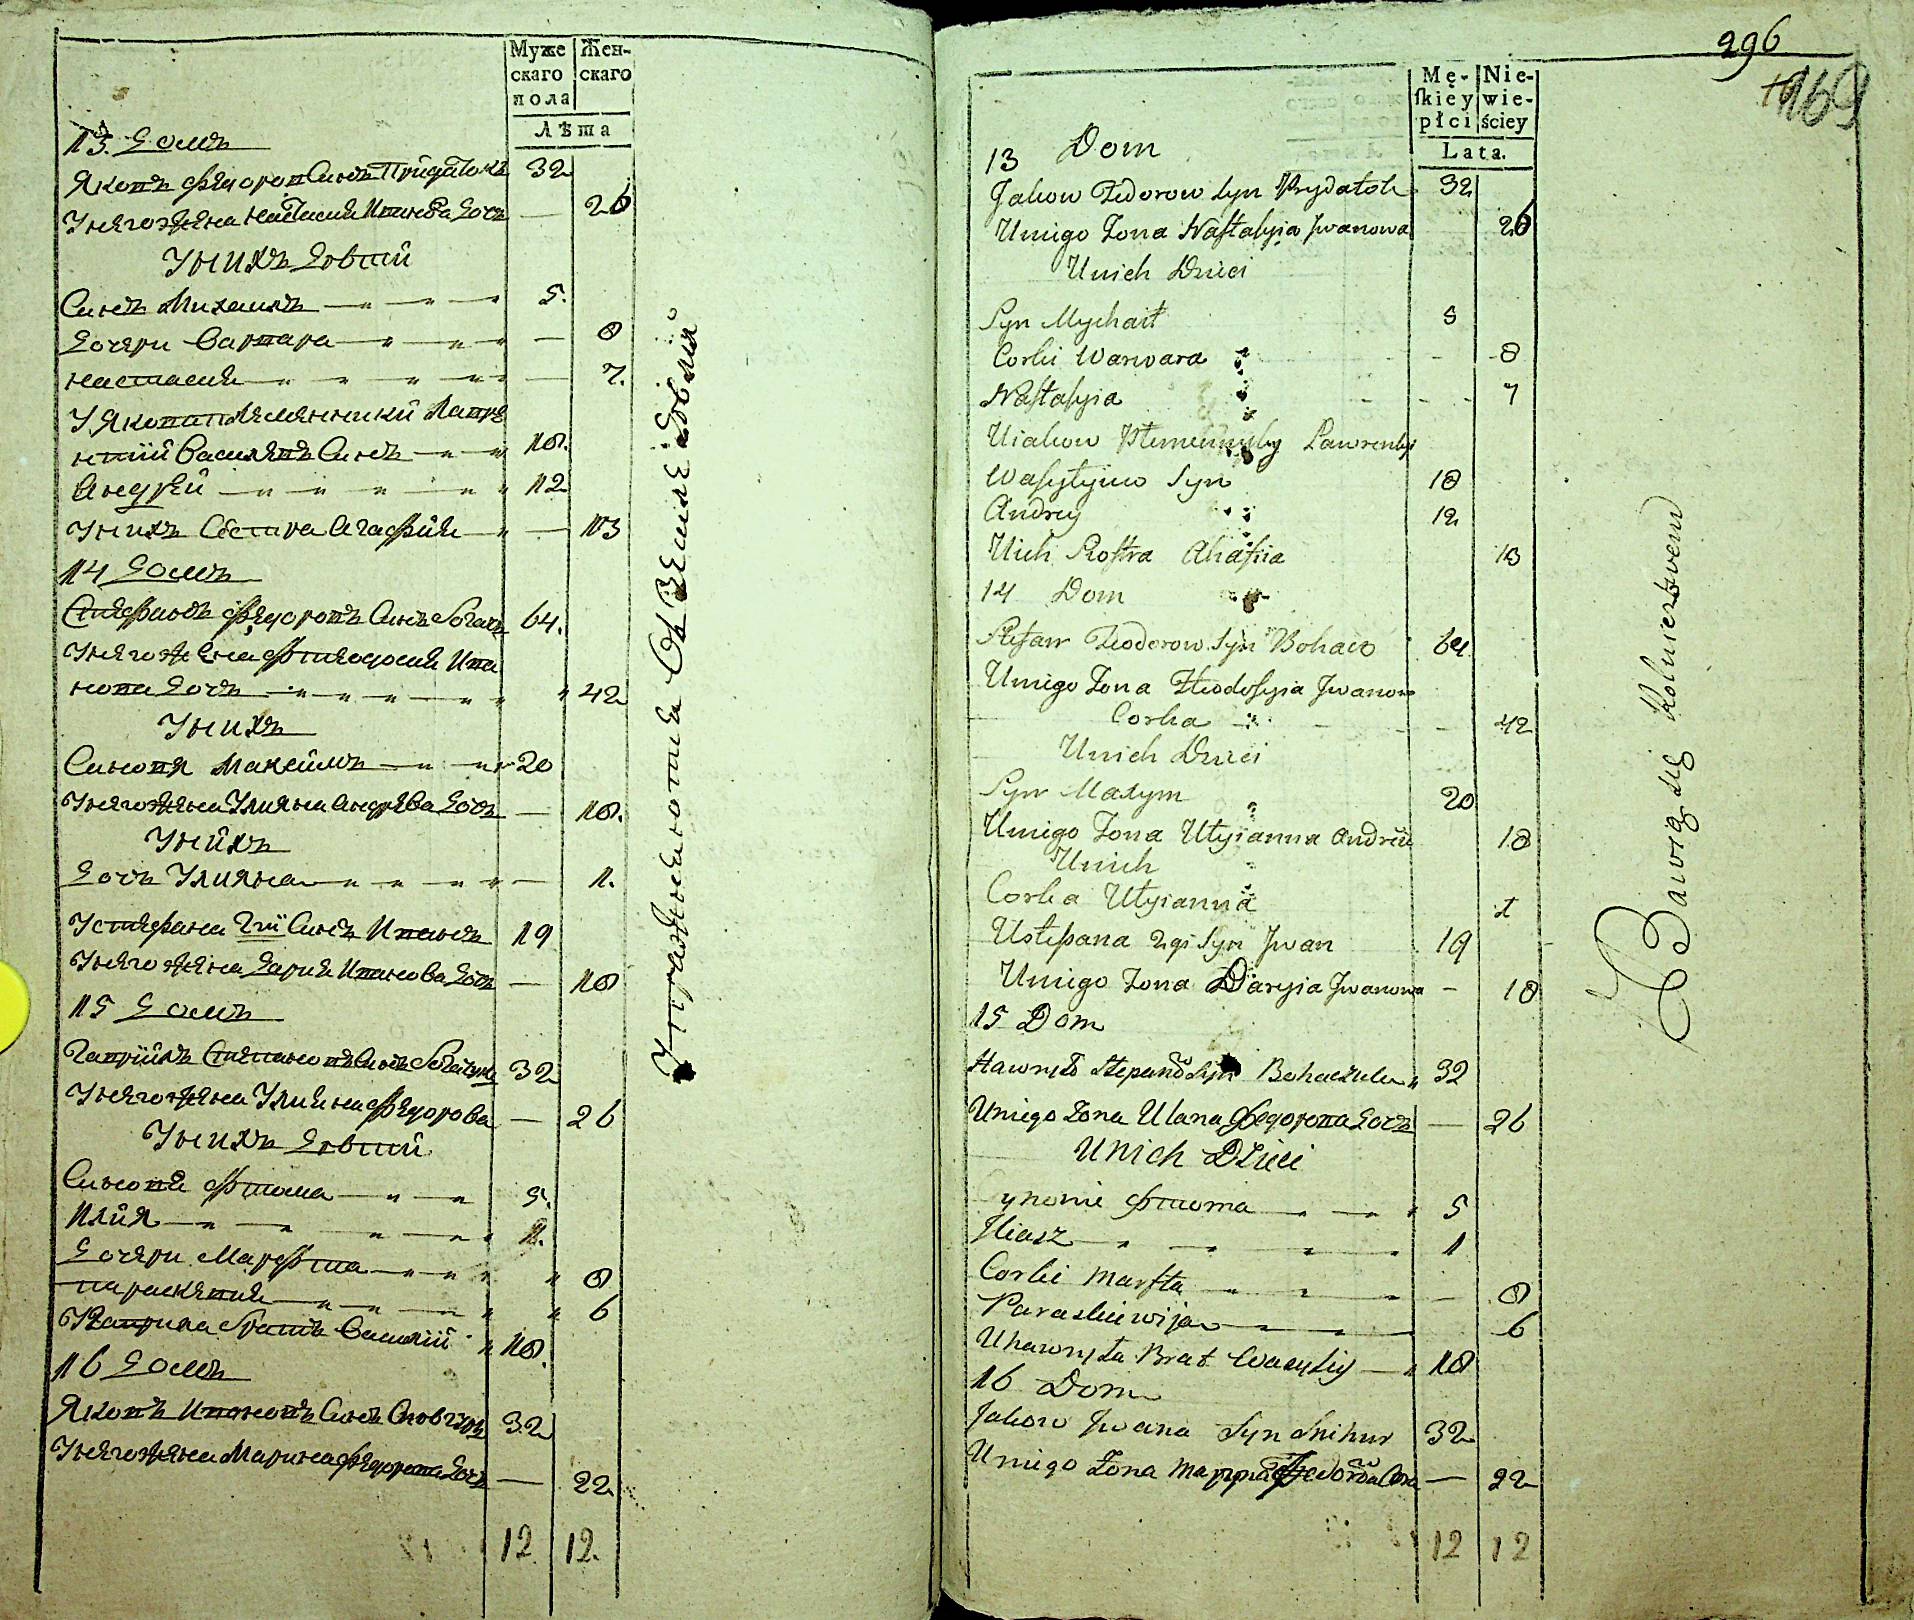 Муже
скаго
пола
Жен-
скаго
Лѣта
13. Домъ
Яковъ Федоровъ Синъ Придатокъ 32
У него жена Настасия Иванова Дочь — 26
У нихъ Дѣти
Синъ Михаилъ — „ — „ — 5.
Дочери Варвара — „ — „ — 8
Настасия — „ — „ — „ — 7.
У Якова племенники Лавре
нтий Василевъ Синъ — „ — „ 18.
Андрей — „ — „ — „ — „ 12
У нихъ Сестра Агафия — „ — 13
14 Домъ
Стефанъ Федоровъ Синъ Богачъ 64.
У него жена Фтеодосия Ива
нова Дочь — „ — „ — „ — „ 42
У нихъ
Синовя Максимъ — „ — „ 20
У него жена Улияна Андрева Дочь — 18.
У нихъ
Дочь Улияна — „ — „ — „ — 1.
У Стефана 2гий Синъ Иванъ 19
У него жена Дария Иванова Дочь — 18
15 Домъ
Гаврiилъ Степановъ Синъ 32
У него жена Улияна Федорова — 26
У нихъ Дѣти
Синовя Фтома — „ — „ 5.
Илия — „ — „ — „ 1.
Дочери Марфта — „ — „ 8
Параскевия — „ — „ — „ 6
У Гаврила Братъ Василий „ 18.
16 Домъ
Яковъ Ивановъ Синъ 32
У него жена Марина Федорова Дочь — 22
12 12.
296
169
Mę-
skiey
płci
Nie-
wie-
ściey
Lata.
13 Dom
Jakow Fedorow Syn Prydatok 32
Uniego Zona Nastasyia Jwanowa 26
Unich Dzieci
Syn Mychaił 5
Corki Warwara „ - 8
Nastasyia „ - - - 7
Uiakow Plemennyky Lawrenty
Wasylyiew Syn 18
Andrey 12
Uich Siostra Ahafiia 13
14 Dom
Stefan Teodorow Syn Bohacz 64
Uniego Zona Fteodosyia Jwanow
Corka - 42
Unich Dzieci
Syn Maxym 20
Uniego Zona Ułyianna Andreie 18
Unich
Corka Ułyianna 1
Ustepana 2gi Syn Jwan 19
Uniego Zona Daryia Jwanowa - 18
15 Dom
Hawryło Stepano Syn 32
Uniego Zona Ulana Федорова Дочь — 26
Unich Dzieci
Synowie Фтома — „ — „ 5
Jliasz — „ — „ — „ 1
Corki Marfta — „ — „ — 8
Paraskiewija — „ — „ — 6
Uhawryła Brat Wasyliy — „ 18
16 Dom
Jakow Jwana Syn Snihur 32
Uniego Zona — 22
12 12